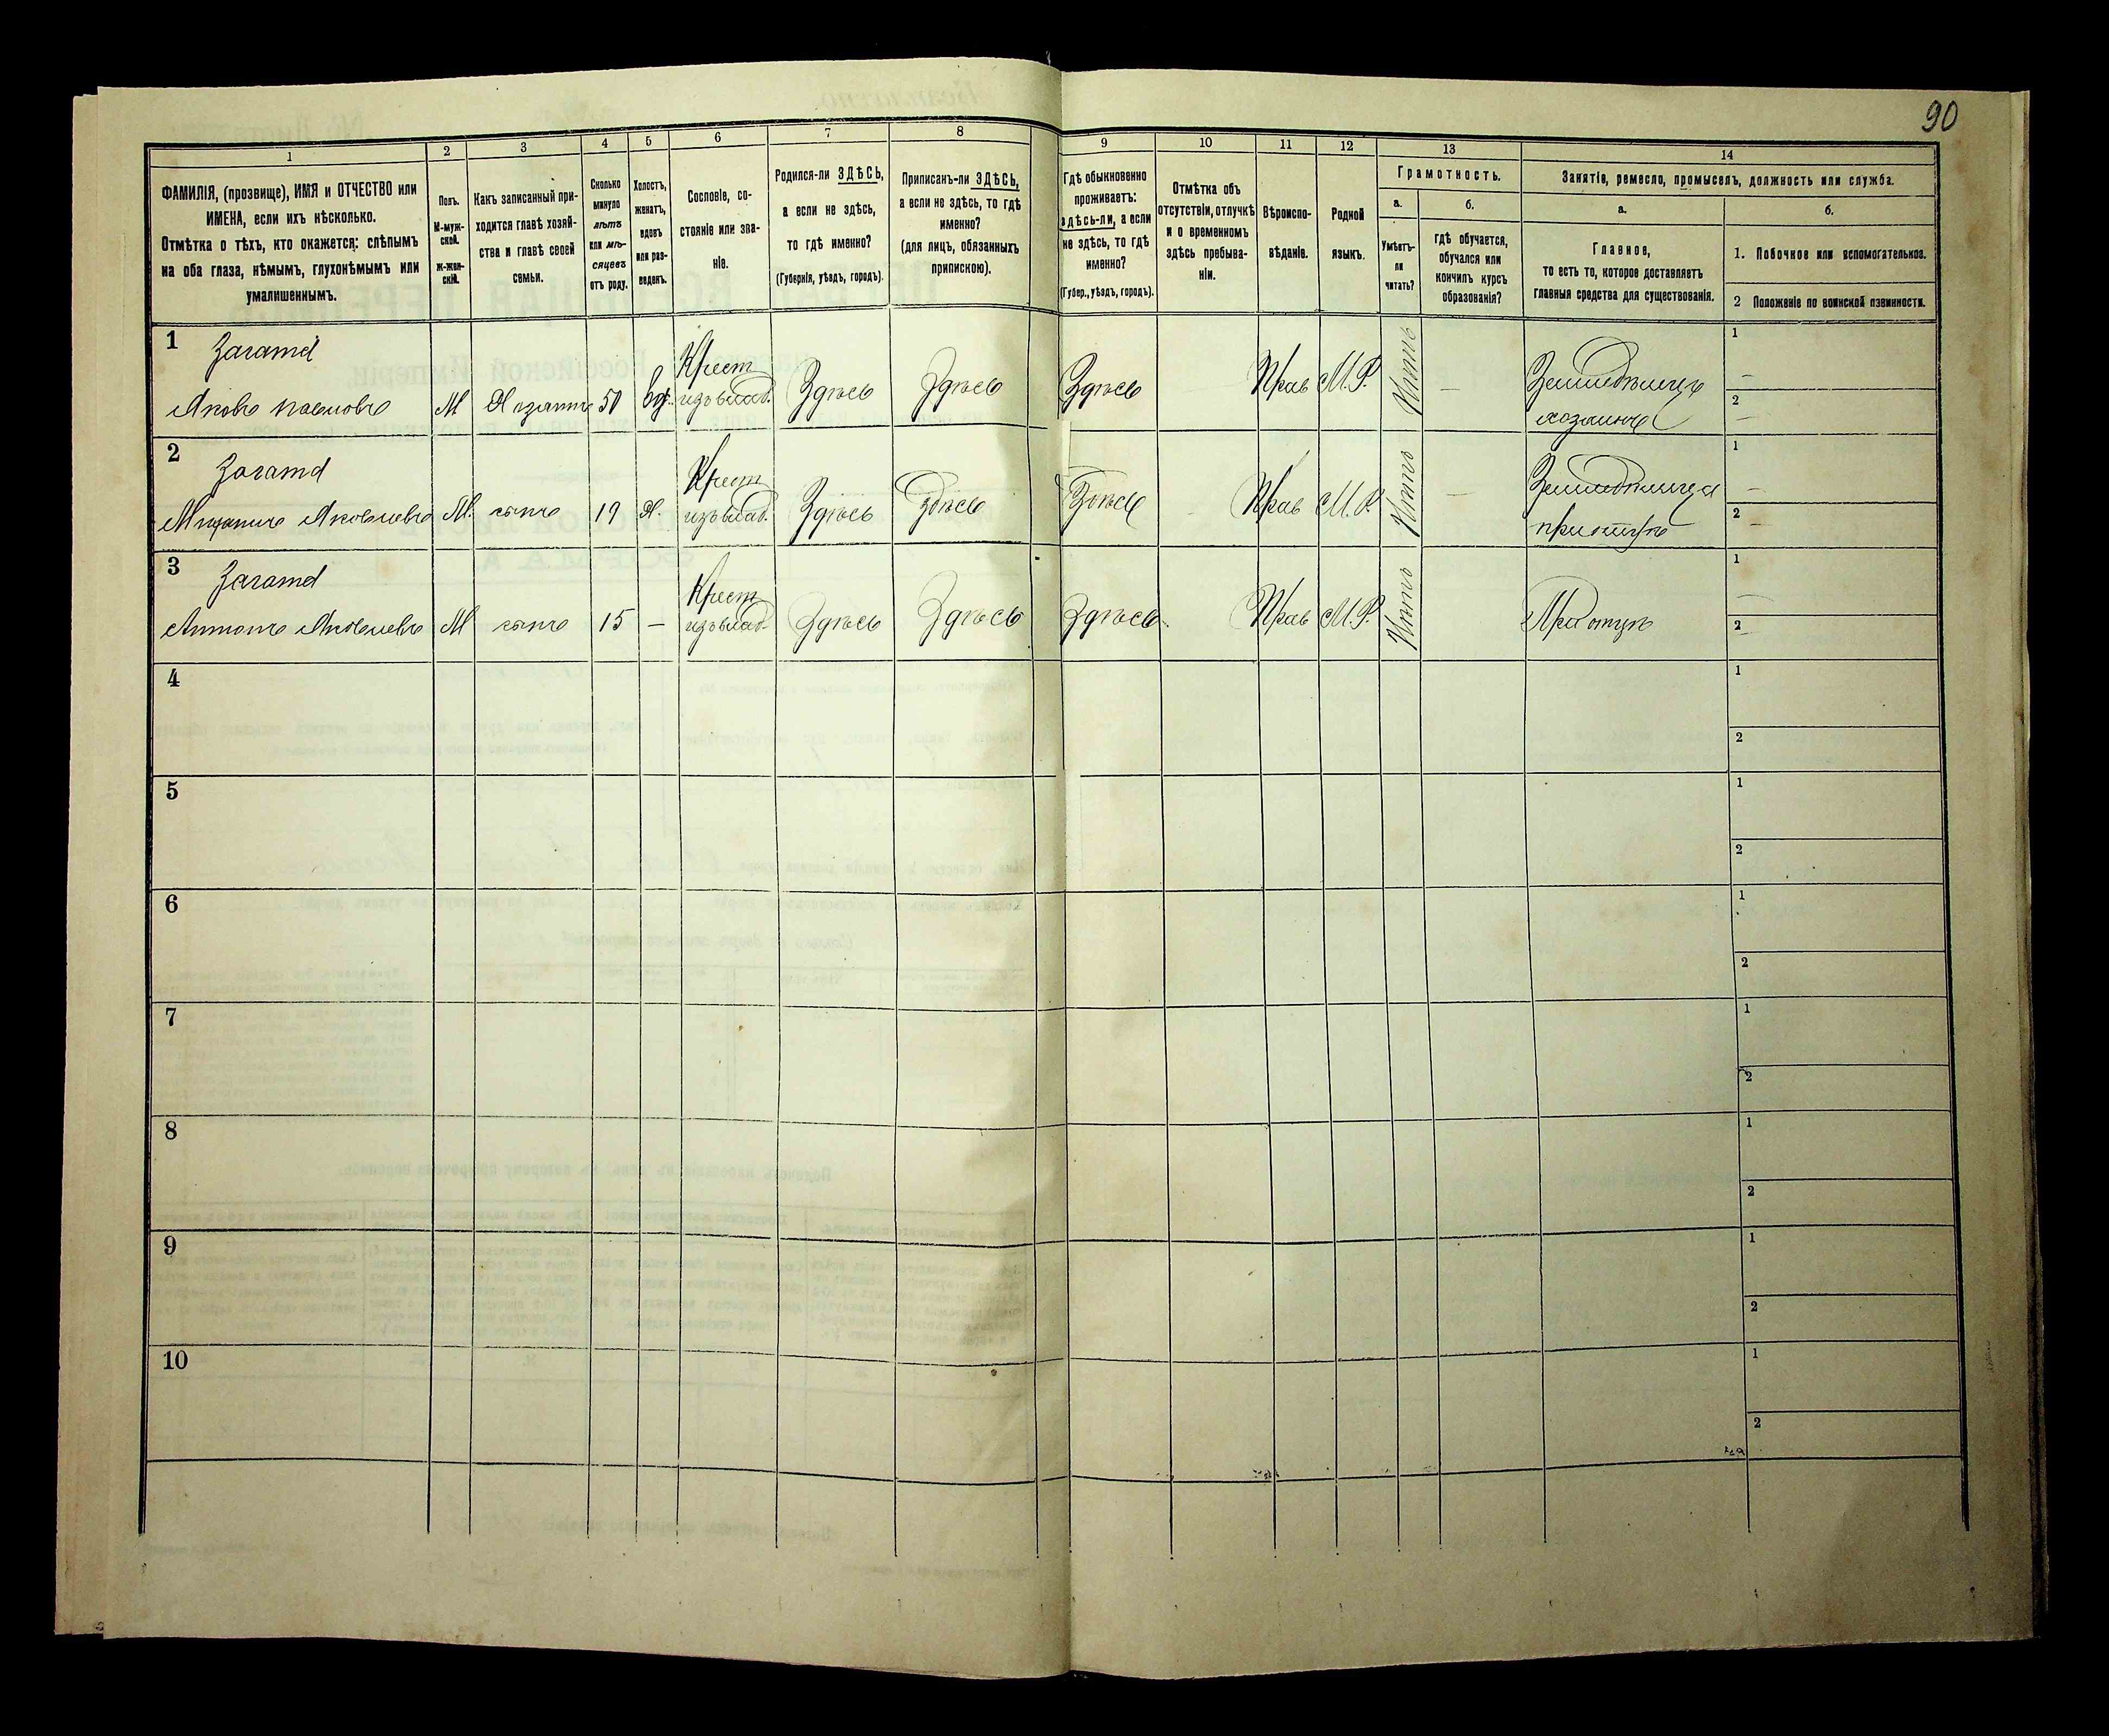 90
1
2
3
4
5
6
7
8
9
10
11
12
13
14
ФАМИЛІЯ, (прозвище), ИМЯ и ОТЧЕСТВО или
ИМЕНА, если ихъ нѣсколько.
Отмѣтка о тѣхъ, кто окажется: слѣпымъ
на оба глаза, нѣмымъ, глухонѣмымъ или
умалишеннымъ.
Полъ.
М-муж-
ской.
ж-жен-
скій.
Какъ записанный при-
ходится главѣ хозяй-
ства и главѣ своей
семьи.
Сколько
минуло
лѣтъ
или мѣ-
сяцевъ
отъ роду.
Холостъ,
женатъ,
вдовъ
или раз-
веденъ.
Сословіе, со-
стояніе или зва-
ніе.
Родился-ли ЗДѢСЬ,
а если не здѣсь,
то гдѣ именно?
(Губернія, уѣздъ, городъ).
Приписанъ-ли ЗДѢСЬ,
а если не здѣсь, то гдѣ
именно?
(для лицъ, обязанныхъ
припискою).
Гдѣ обыкновенно
проживаетъ:
здѣсь-ли, а если
не здѣсь, то гдѣ
именно?
(Губер., уѣздъ, городъ).
Отмѣтка объ
отсутствіи, отлучкѣ
и о временномъ
здѣсь пребыва-
ніи.
Вѣроиспо-
вѣданіе.
Родной
языкъ.
Грамотность.
а.
Умѣетъ-
ли
читать?
б.
гдѣ обучается,
обучался или
кончилъ курсъ
образованія?
Занятіе, ремесло, промыселъ, должность или служба.
а.
Главное,
то есть то, которое доставляетъ
главныя средства для существованія.
б.
1. Побочное или вспомогательное.
2 Положеніе по воинской повинности.
1
Яковъ Павловъ
М
Хозяинъ
50
Вд.
Крест
изъ влад.
Здѣсь
Здѣсь
Здѣсь
Прав
М. Р.
Нѣтъ
—
хозяинъ
1
—
2
—
2
Яковлевъ
М.
сынъ
19
Х.
Крест
изъ влад.
Здѣсь
Здѣсь
Здѣсь
Прав
М. Р.
Нѣтъ
—
при отцѣ
1
—
2
—
3
Антонъ Яковлевъ
М
сынъ
15
—
Крест
изъ влад.
Здѣсь
Здѣсь
Здѣсь
Прав
М. Р.
Нѣтъ
При отцѣ
1
—
2
—
4
1
2
5
1
2
6
1
2
7
1
2
8
1
2
9
1
2
10
1
2